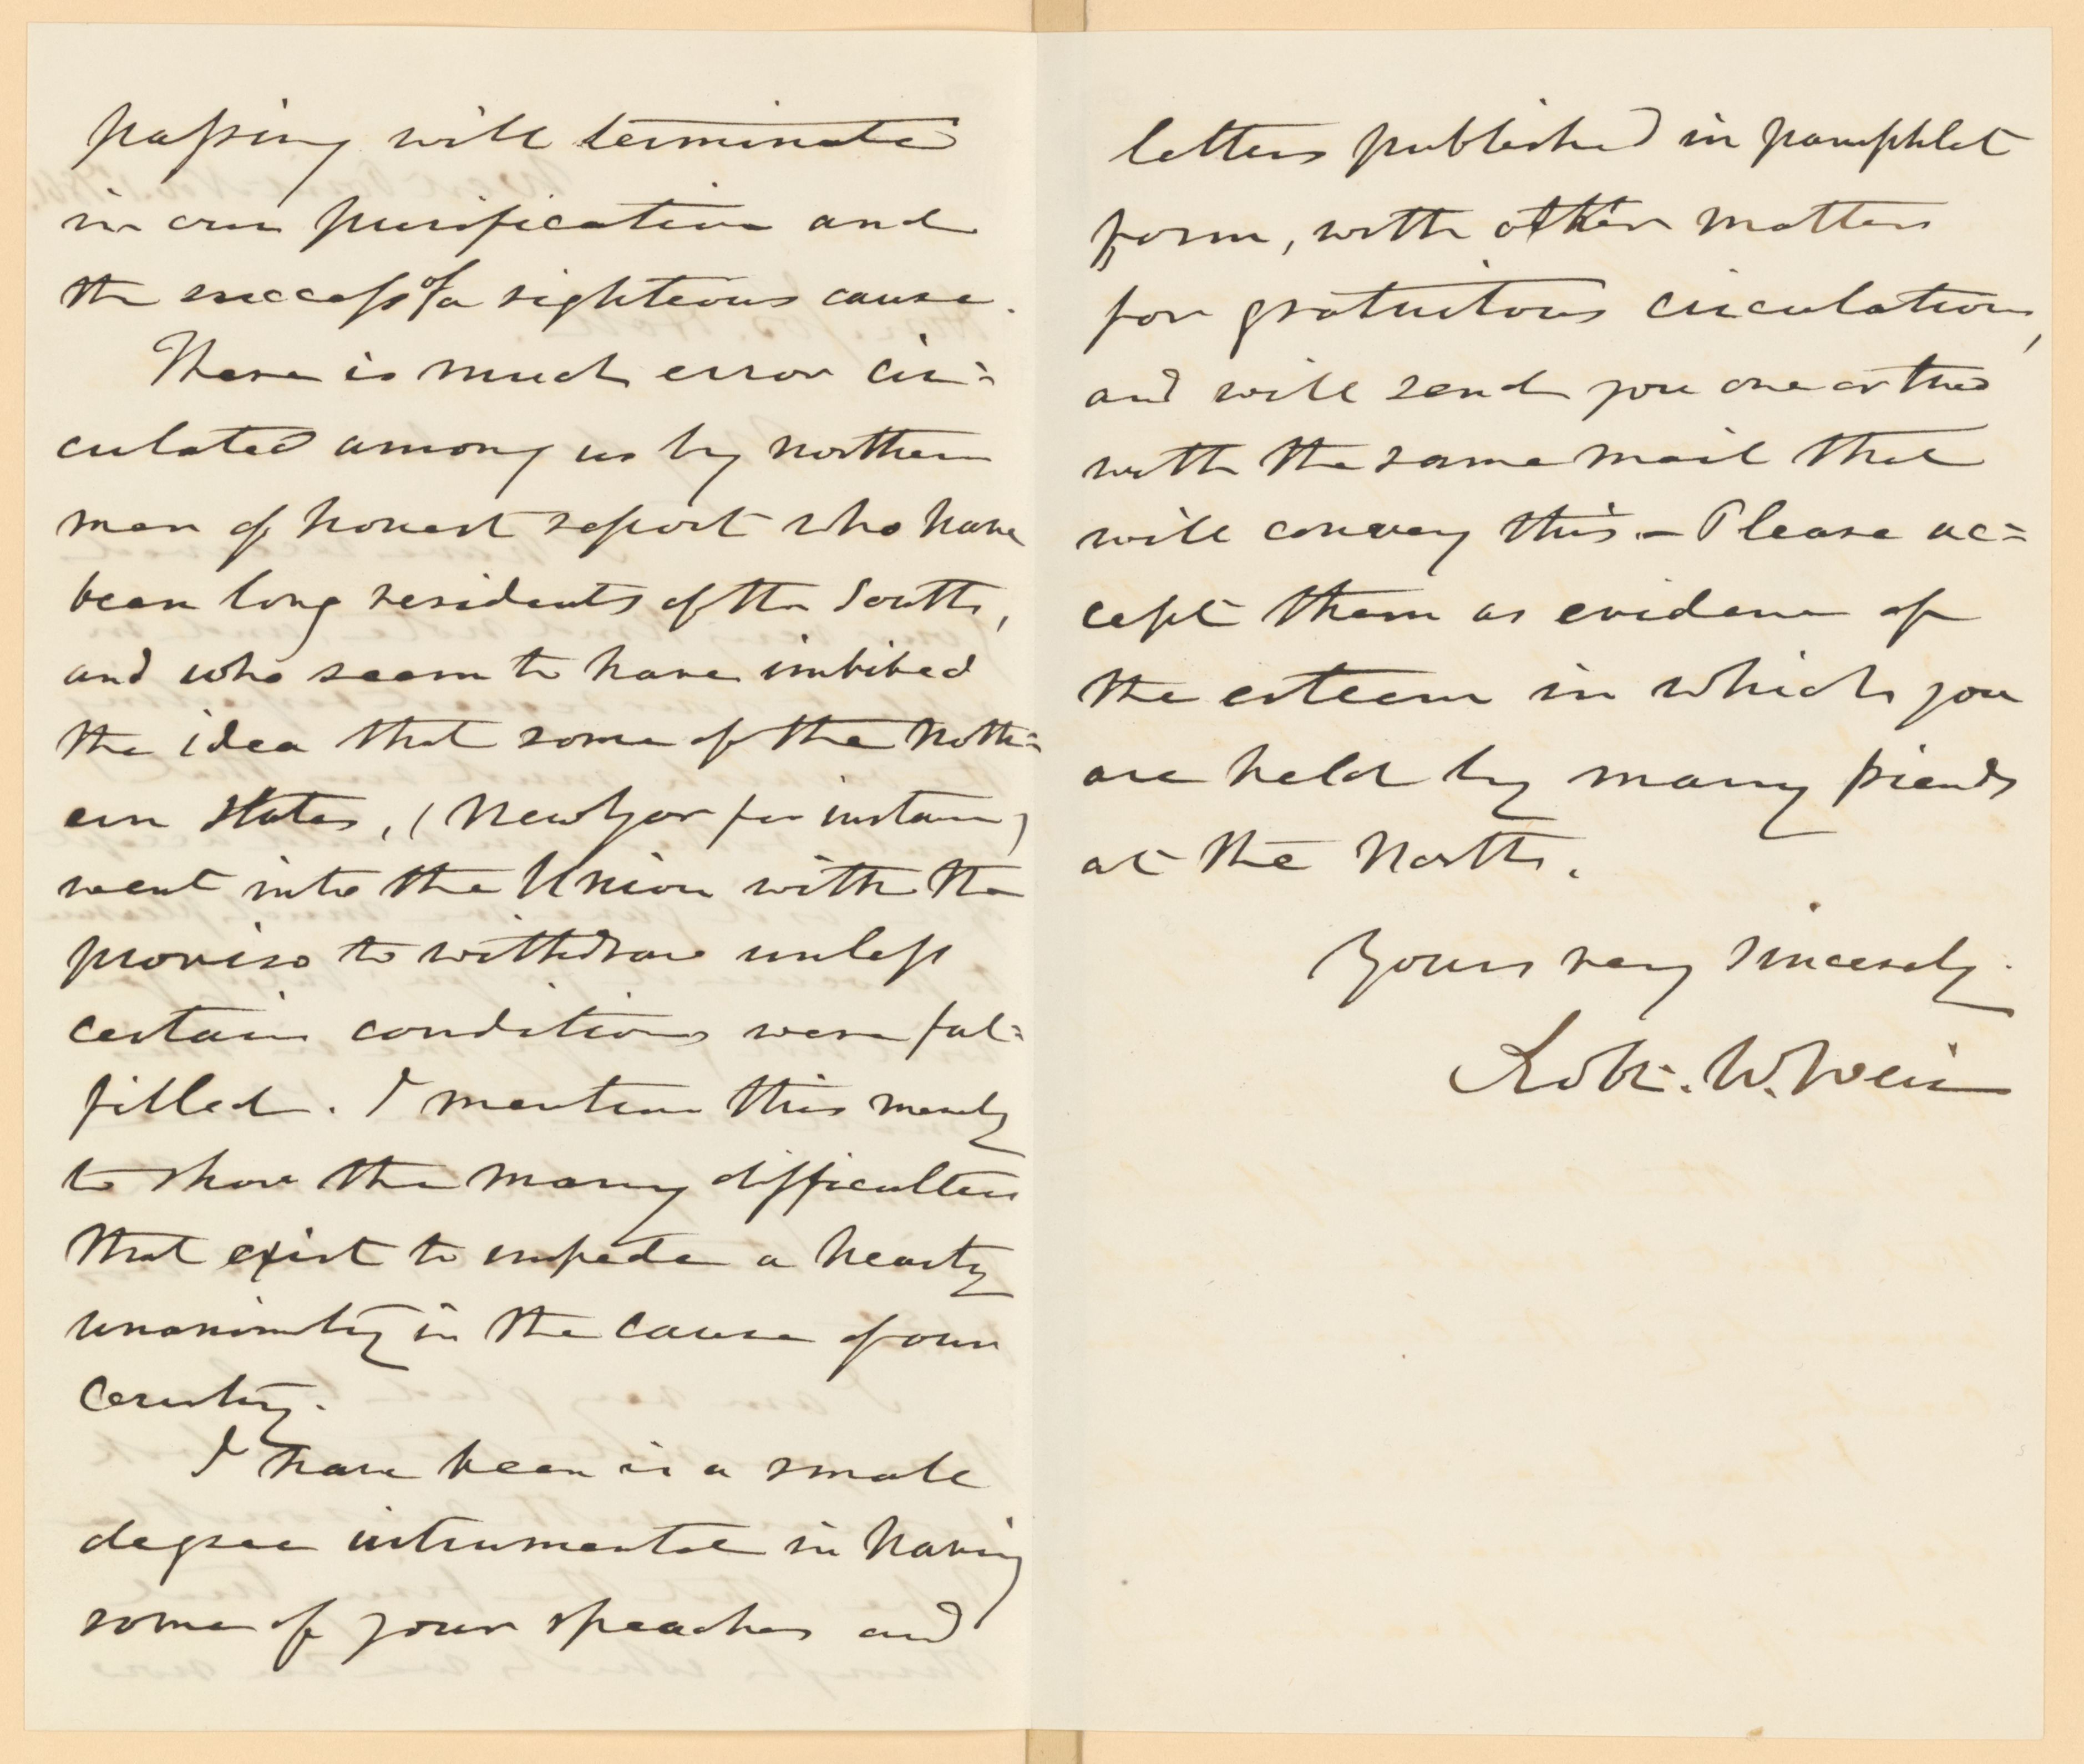 passing will terminate
in our purification and
the success of a righteous cause.
There is much error cir=
culated among us by northern
men of honest report who have
been long residents of the South,
and who seem to have imbibed
the idea that some of the North=
ern States, (New Yor for instance)
went into the Union with the
proviso to withdraw unless
certain conditions were ful=
filled. I mention this merely
to show the many difficulties
that exist to impede a hearty
unanimity in the cause of our
Country.
I have been in a small
degree instrumental in having
some of your speeches and
letters published in pamphlet
form, with other matters
for gratuitous circulation,
and will send you one or two
with the same mail that
will convey this – Please ac=
cept them as evidence of
the esteem in which you
are held by many friends
at the North.
Yours very sincerely.
Robt. W. Weir